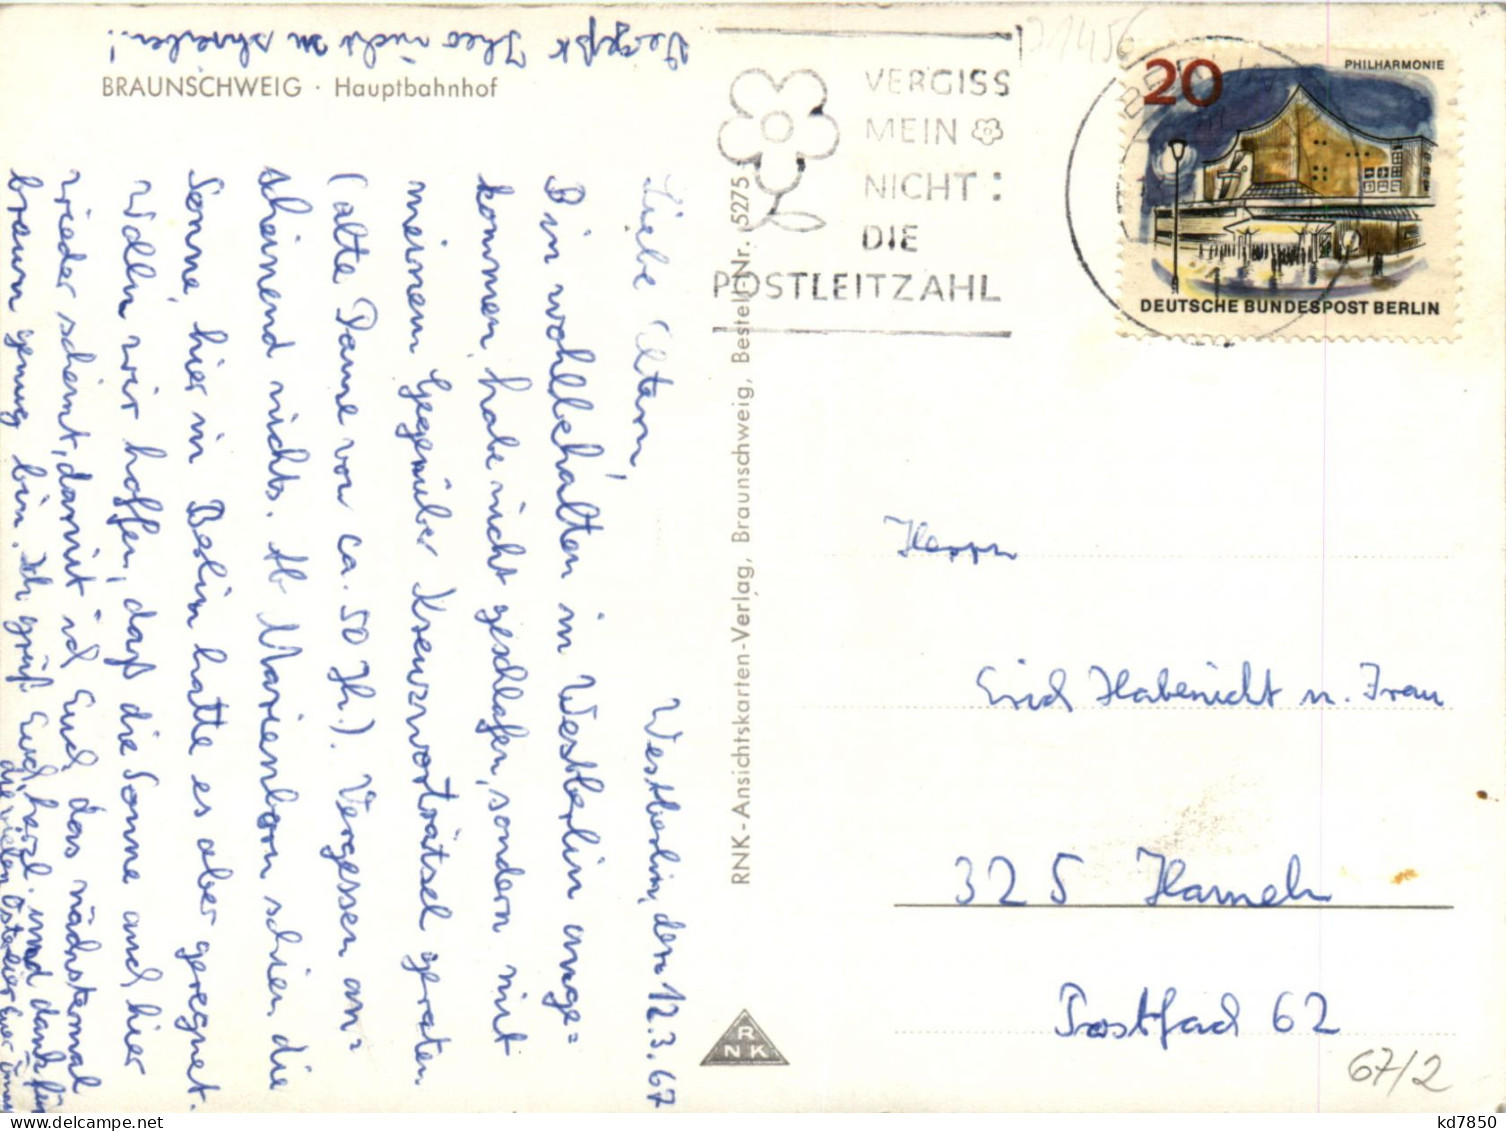 Vergeßt Theo nicht zu schreiben!
BRAUNSCHWEIG · Hauptbahnhof
Westberlin, den 12.3.67
Liebe Eltern,
Bin wohlbehalten in Westberlin ange=
kommen, habe nicht geschlafen, sondern mit
meinem Gegenüber Kreuzworträtsel geraten.
(alte Dame von ca. 50 Jh.). Vergessen an=
scheinend nichts. Ab Marienborn schien die
Sonne, hier in Berlin hatte es aber geregnet.
Wolln wir hoffen, daß die Sonne auch hier
wieder scheint, damit ich Euch das nächstemal
braun genug bin. Ich grüß Euch herzl. und dank für
die vielen Ostereier Euer
RNK-Ansichtskarten-Verlag, Braunschweig, Bestell-Nr. 5275
RNK
VERGISS
MEIN
NICHT:
DIE
POSTLEITZAHL
D1456
BERLIN
20
PHILHARMONIE
DEUTSCHE BUNDESPOST BERLIN
Herrn
Erich Habenicht u. Frau
325 Hameln
Postfach 62
67/2
https://www.delcampe.net
kd7850